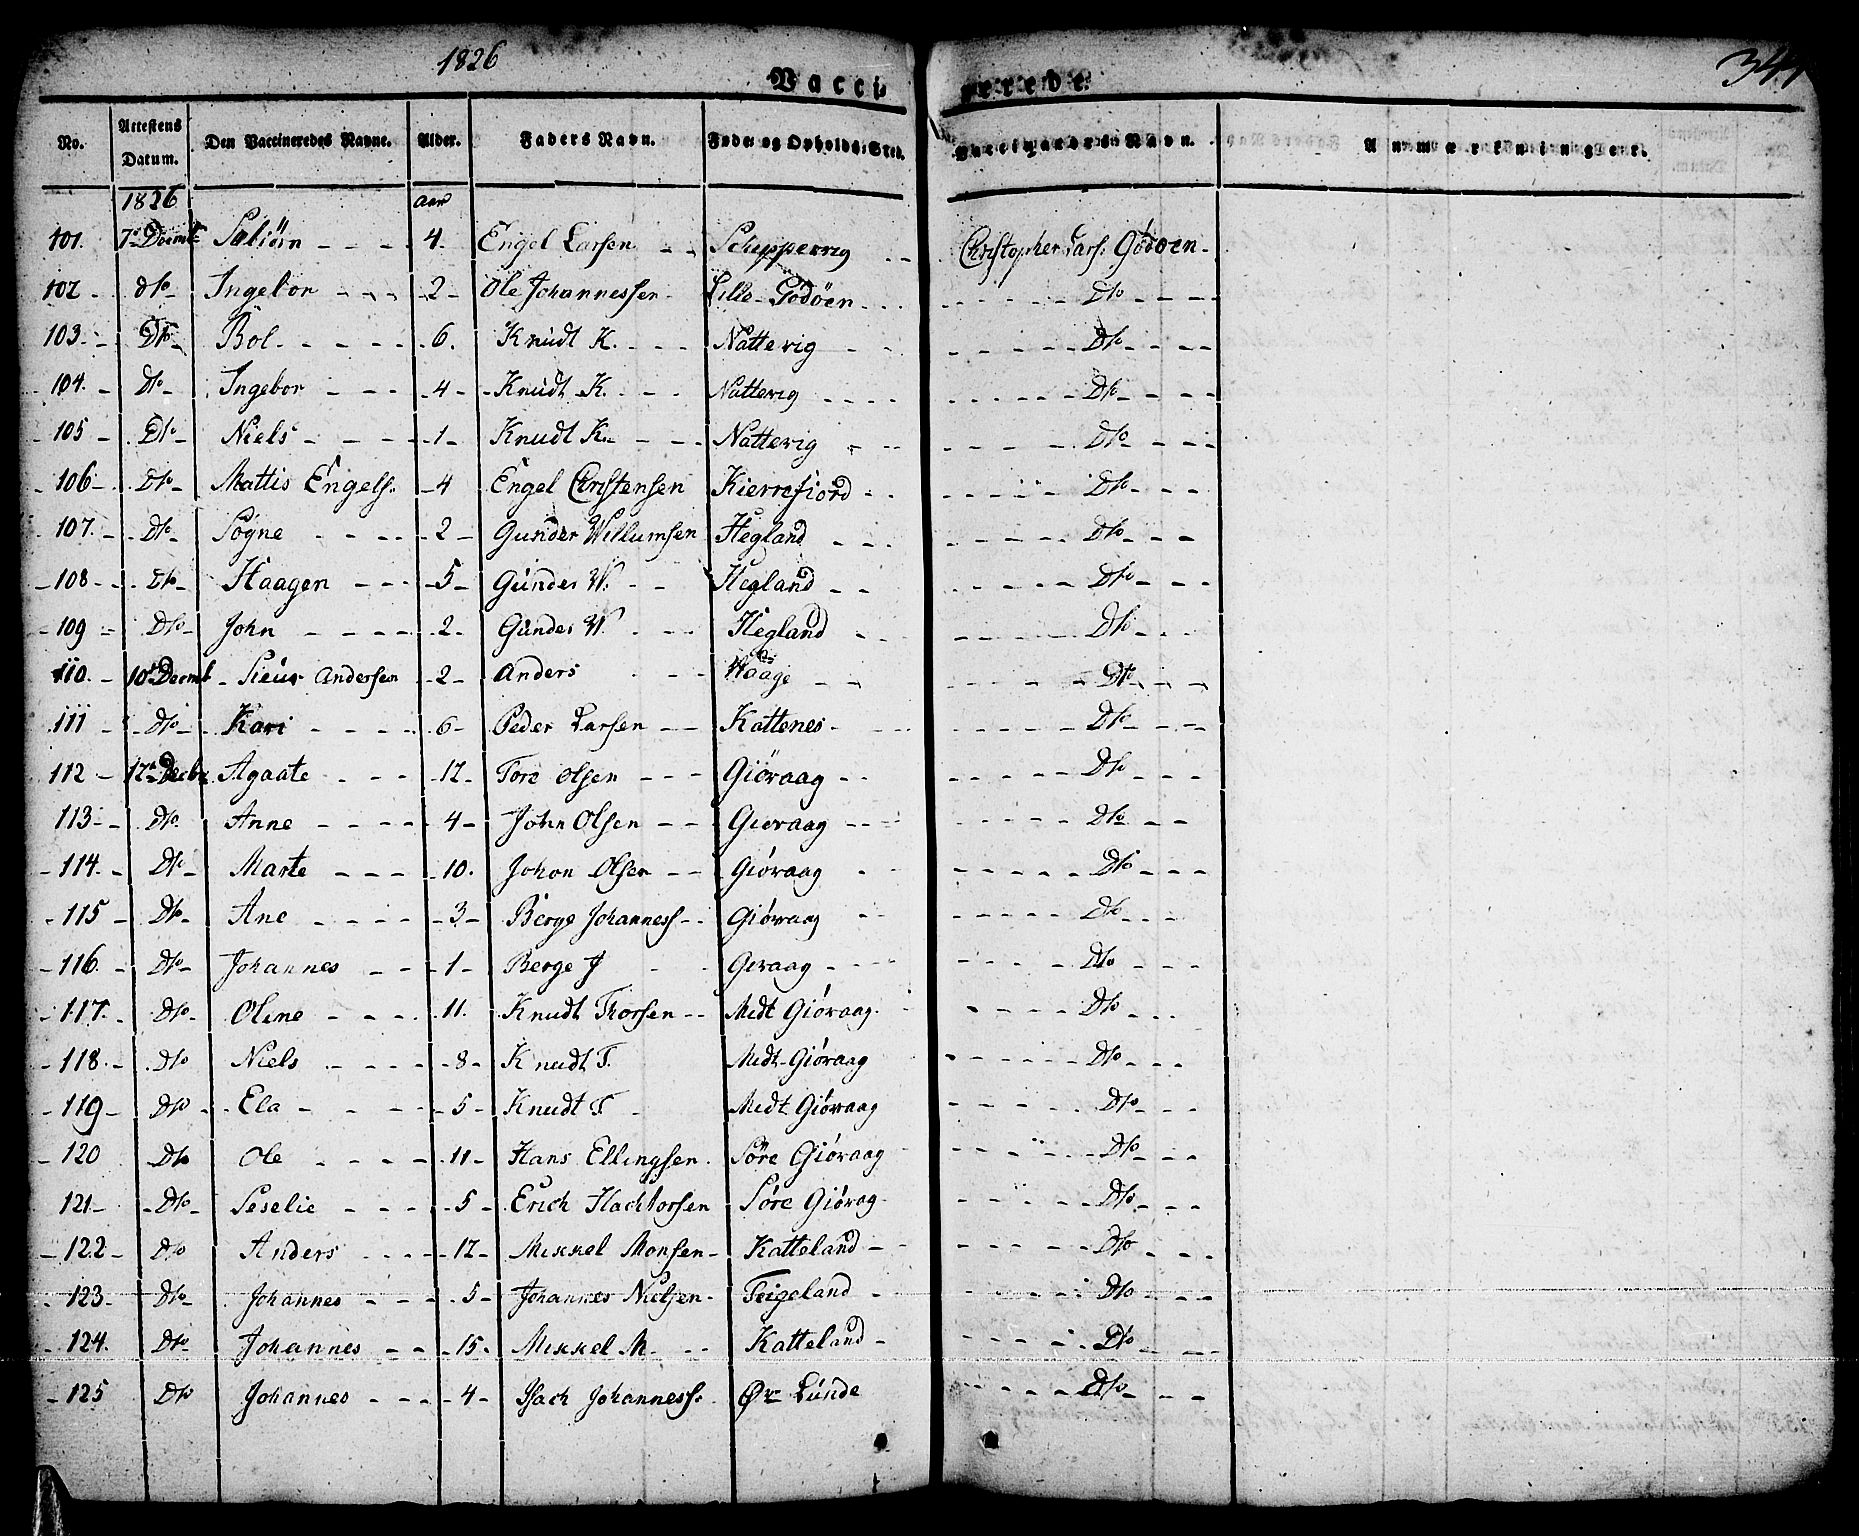 1826
341
Vaccinerede.
No. Attestens Datum. Den Vaccineredes Navne. Alder. Faders Navn. Føde- og Opholds-Sted. Vaccinateurs Navn. Anmærkninger.
1826 Aar
101. 7de Decmb Saliörn - - - 4. Engel Larsen - - Schippervig - - Christopher Lars. Godöen -
102 - dto - Ingebor - - - - 2 - Ole Johannessen - Lille-Godöen - - - Dto - - -
103. - Dto - Bol - - - - 6. Knudt K. - - - Nattevig - - Dto - - -
104. - Dto - Ingebor - - - - 4 - Knudt K. - - - Nattevig - - - - Dto - - -
- 105 - Dto - Niels - - - - 1 - Knudt K. - - - Nattevig - - - Dto - - -
- 106 - Dto - Mattis Engels. - 4 Engel Christensen Kierrefiord - - Dto - - -
107. - Dto - Sögne - - - - 2 - Gunder Willumsen Hegland - - - Dto - - -
- 108 - Dto - Haagen - - - 5 - Gunder W. - - Hegland - - Dto - - -
- 109 - Dto - John - - - - 2 - Gunder W. - - - Hegland - - Dto - - -
110. - 10de Decmb - Sieur Andersen - 2 - Anders - - - Haage - - Dto - - -
111 - Dto - Kari - - - - 6 - Peder Larsen - - Kattenes - Dto - - -
112 - 12te Decbr Agaate - - - 12 - Tore Olsen - - - Giövaag - - Dto - - -
- 113 - Dto. Anne - - - - 4 - John Olsen - - - Giövaag - - - Dto - - -
- 114. - Dto - Marte - - - 10. Johon Olsen - - Giövaag - - Dto - - -
- 115 - Dto - Ane - - - - 3 - Berge Johanness - - Giövaag - - Dto - - -
- 116. - Dto - Johannes - - - 1 - Berge J - - Givaag - - - Dto - - -
- 117. - Dto - Oline - - - 11. Knudt Thorsen - - Midt Giövaag. Dto - - -
- 118. - Dto Niels - - - 8 - Knudt T. Midt-Giövaag Dto - - -
- 119 - Dto - Ela - - - - 5 - Knudt T - Midt Giövaag Dto - - -
- 120 Dto Ole - - - - 11 - Hans Ellingsen. Söre Giövaag - Dto - - -
121 - Dto - Seselie - - - 5 - Erich Hachtorsen Söre Giövag - Dto - - -
- 122 - Dto Anders - - - 12 - Mikkel Monsen - Katteland - - Dto - - -
- 123 - Dto - Johannes - - - 5 - Johannes Nielsen - Teigeland - Dto - - -
- 124. Dto - Johannes - - 15. Mikkel M. - - Katteland - Dto - - -
- 125 Dto Johannes - - - 4 - Isach Johanness. Ør Lunde Dto - - -